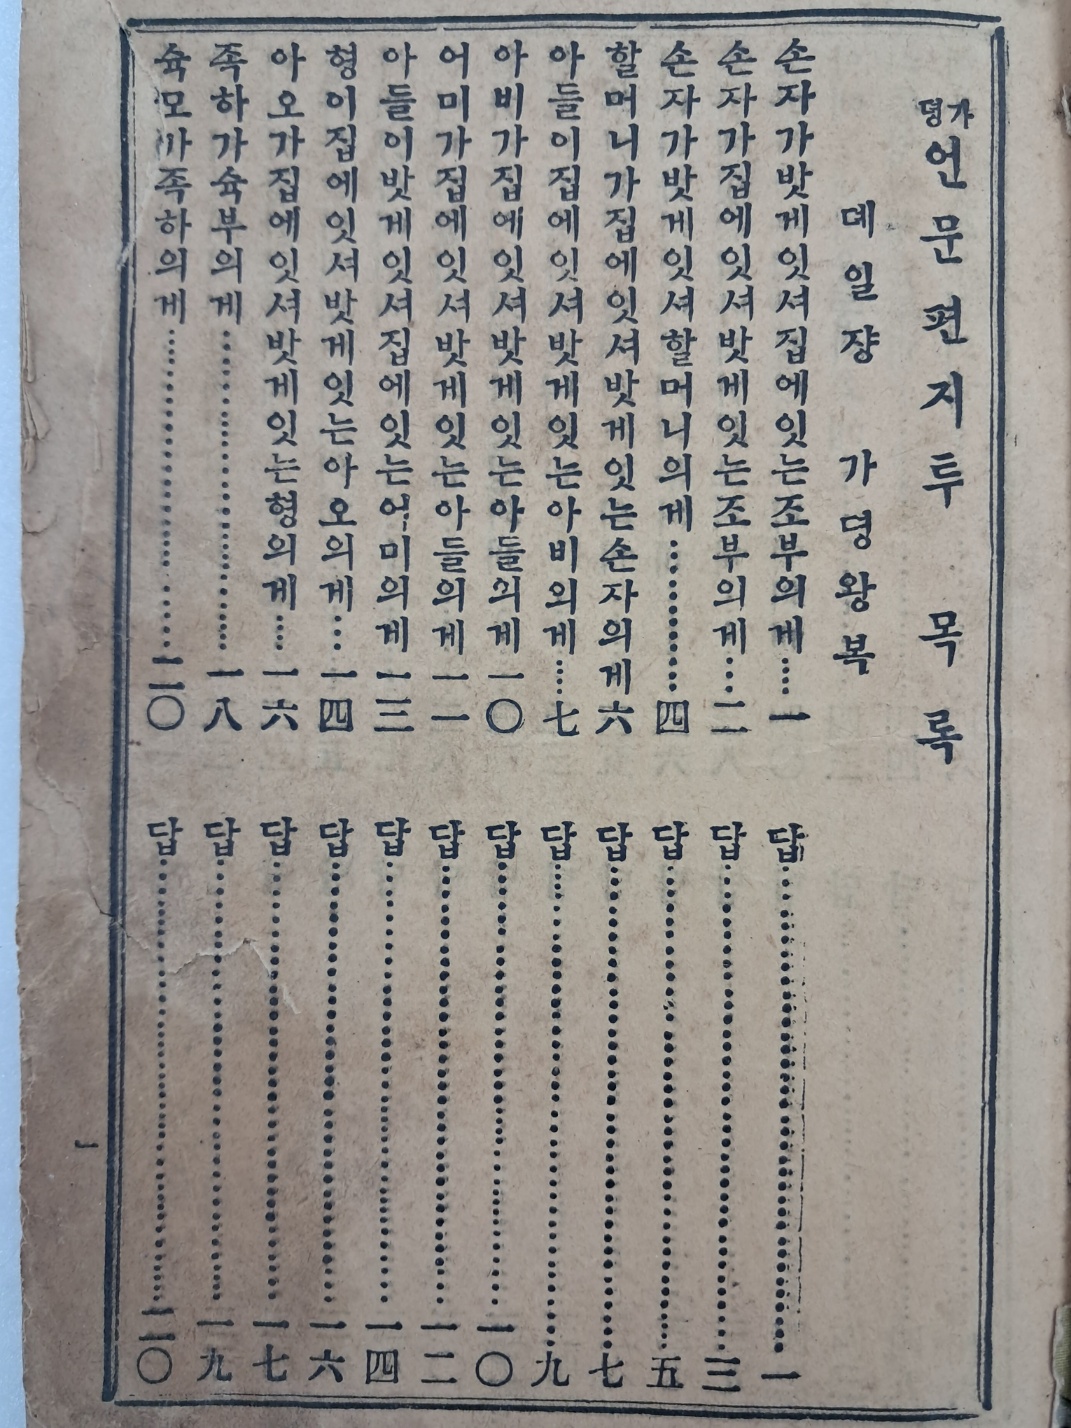 가뎡언문편지투 목록
뎨일쟝 가뎡왕복
손자가밧게잇셔집에잇는조부의게……一 답……一
손자가집에잇셔밧게잇는조부의게……二 답……三
손자가밧게잇셔할머니의게……四 답……五
할머니가집에잇셔밧게잇는손자의게六 답……七
아들이집에잇셔밧게잇는아비의게……七 답……九
아비가집에잇셔밧게잇는아들의게一〇 답……一〇
어미가집에잇셔밧게잇는아들의게一一 답……一二
아들이밧게잇셔집에잇는어미의게一三 답……一四
형이집에잇셔밧게잇는아오의게……一四 답……一六
아오가집에잇셔밧게잇는형의게……一六 답……一七
족하가슉부의게……一八 답……一九
슉모가족하의게……二〇 답……二〇
一